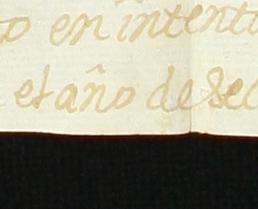 en intent
el año de sec